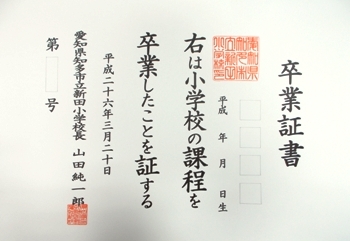 卒業証書
平成　年　月　日生
右は小学校の課程を
卒業したことを証する
平成二十六年三月二十日
愛知県知多市立新田小学校長　山田純一郎
第　　号